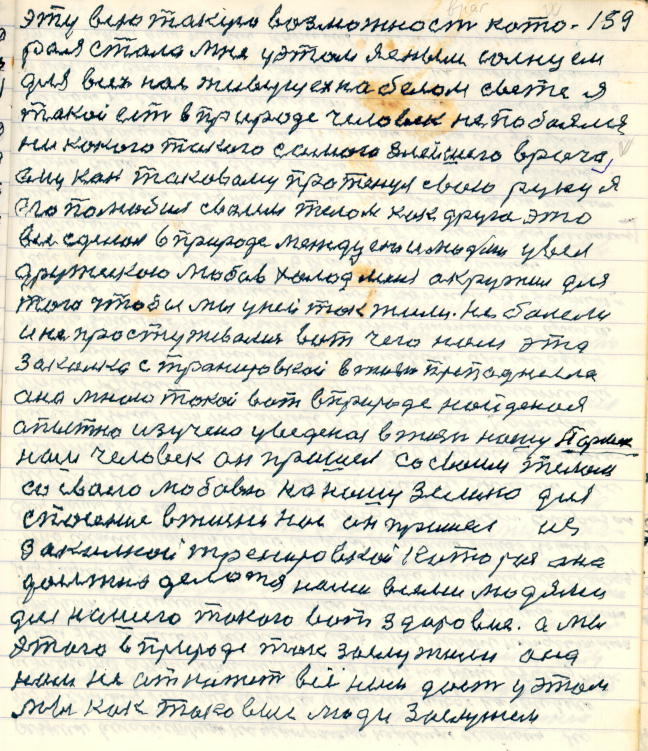 эту всю такую возможност кото- 159
рая стала мне у этом ясным солнцем
для всех нас живущех на белом свете я
такой ест в природе человек не побоялся
ни какого такого самого злейшего врага
ему как таковому протенул свою руку я
его полюбил своим телом как друга это
все сделал в природе между ем и людми увел
дружеского любов холод меня окружил для
того чтобы мы у ней так жили. не болели
и не простуживалия вот чего нам эта
закалка с транировкой в жизн преподнесла
она мною такой вот в природе найденая
опытно изучена уведеная в жизн нашу Паршек
наш человек он пришел со своим телом
со своего любовю на нашу землю для
спасение в жизни нас он пришел из
закалкой тренировкой Которая она
должно делатя нами всеми людями
для нашего такого вот здоровия. а мы
этого в природе так заслужили она
нам не откажет все нам даст у этом
мы как таковые люди заслужем